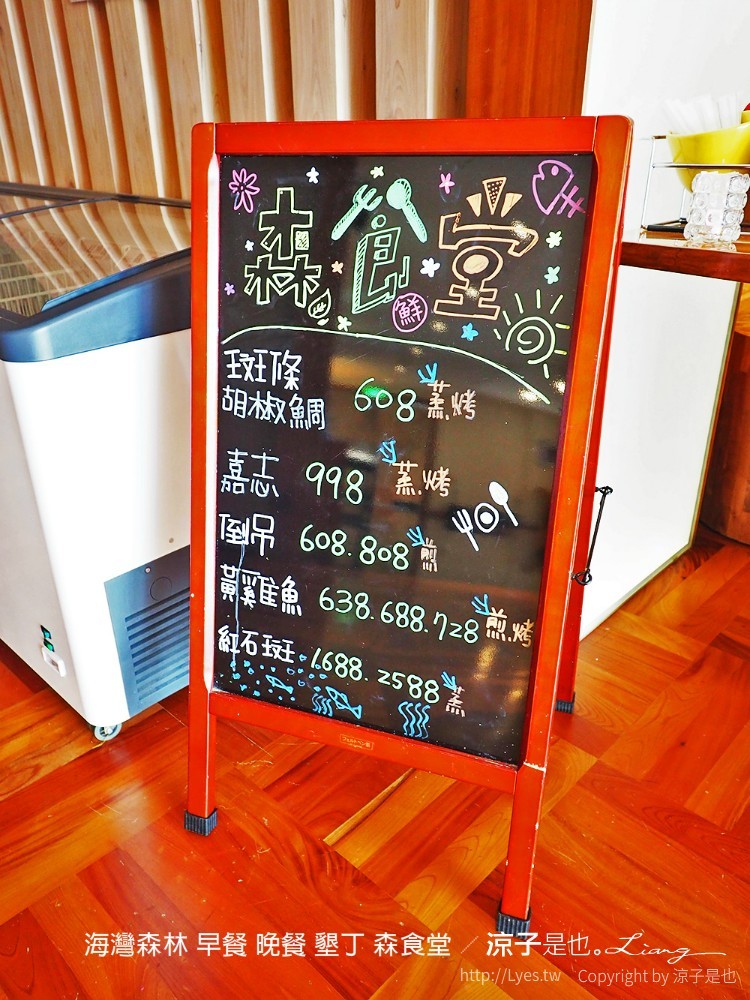 森食堂
鮮
斑條
胡椒鯛 608 蒸.烤
嘉志 998 蒸.烤
倒吊 608.808 煎
黃雞魚 638.688.728 煎.烤
紅石斑 1.688.2588 蒸
海灣森林 早餐 晚餐 墾丁 森食堂 ／ 涼子是也。Liang
http://Lyes.tw Copyright by 涼子是也